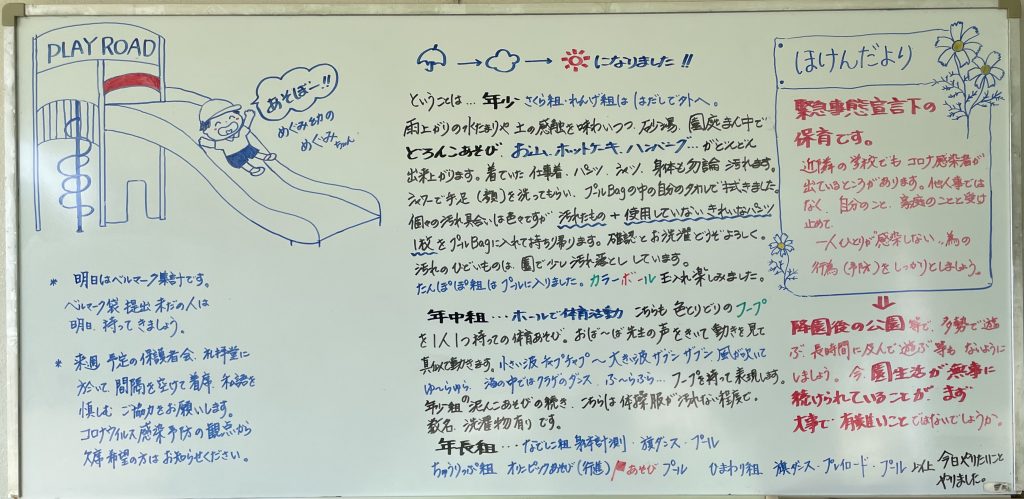 PLAY ROAD
あそぼー!!
めぐみ幼の
めぐみちゃん
* 明日はベルマーク集計です。
ベルマーク袋 提出 未だの人は
明日 持って きましょう。
* 来週 予定の保護者会、礼拝堂に
於いて 間隔を空けて着席、私語を
慎しむ ご協力をお願いします。
コロナウイルス感染予防の観点から
欠席希望の方は お知らせください。
→ → になりました!!
ということは… 年少 さくら組・れんげ組は はだしで外へ。
雨上がりの水たまりや 土の感触を味わいつつ、砂場、園庭まん中で
どろんこあそび お山、ホットケーキ、ハンバーグ…がどんどん
出来上がります。着ていた 仕事着、パンツ、シャツ、身体も勿論 汚れます。
シャワーで手足(顔)を洗ってもらい、プールBagの中の自分のタオルで拭きました。
個々の汚れ具合いは色々ですが 汚れたもの + 使用していないきれいなパンツ
1枚をプールBagに入れて持ち帰ります。確認とお洗濯どうぞよろしく。
汚れのひどいものは、園で少し汚れ落とししています。
たんぽぽ組はプールに入りました。カラーボール 玉入れ楽しみました。
年中組…ホールで体育活動 こちらも 色とりどりのフープ
を1人1つ持っての体育あそび。おば〜ば先生の声をきいて動きを見て
真似て動きます。小さい波 チャプチャプ〜 大きい波 ザブン ザブン 風が吹いて
ゆ〜らゆら 海の中ではクラゲのダンス、ふ〜らふら… フープを持って表現します。
年少組の泥んこあそびの続き、こちらは 体操服が汚れない程度で、
数名 洗濯物有りです。
年長組…なでしこ組 身体計測・旗ダンス・プール
ちゅうりっぷ組 オリンピックあそび(行進) あそび プール ひまわり組 旗ダンス・プレイロード・プール 以上 今日やりたいこと
やりました。
ほけんだより
緊急事態宣言下の
保育です。
近隣の学校でも コロナ感染者が
出ているところがあります。他人事では
なく、自分のこと、家庭のことと受け
止めて、
一人ひとりが感染しない、為の
行為(予防)をしっかりとしましょう。
降園後の公園 等で、多勢で遊
ぶ、長時間に及んで遊ぶ 等も ないように
しましょう。今、園生活が無事に
続けられていることが、まず
大事で 有難いことではないでしょうか。